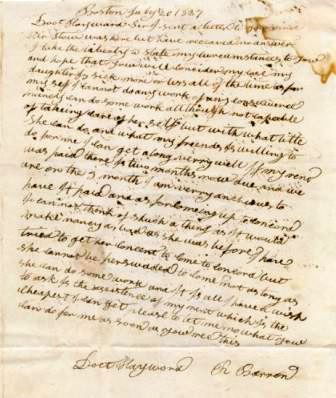 Boston July 20 1827
Doct Hayward Sir I sent a letter to you since
Mr Stow was here but have received no answer
I take the liberty to state my circumstances to you
and hope that you will consider my case my
daughter is sick more or less all of the time as for
my self I cannot do any work of any consequence
nancy can do some work allthough not capable
of takeing care of her self but with what little
she can do and what my friends is willing to
do for me I can get along verry well if my rent
was paid there is two months now due and we
are on the 3 month I am verry anchous to
have it paid and as for coming up to concord
I cannot think of shuch a thing as it would
make nancy as bad as she was before I have
tried to get her concent to come to concord but
she cannot be perswaded to come not as long as
she can do some work and it is all I have wish
to ask is the of my rent which is the
cheapest I can get please to let me know what you
can do for me as soon as you rec this
Doct Hayward Barron